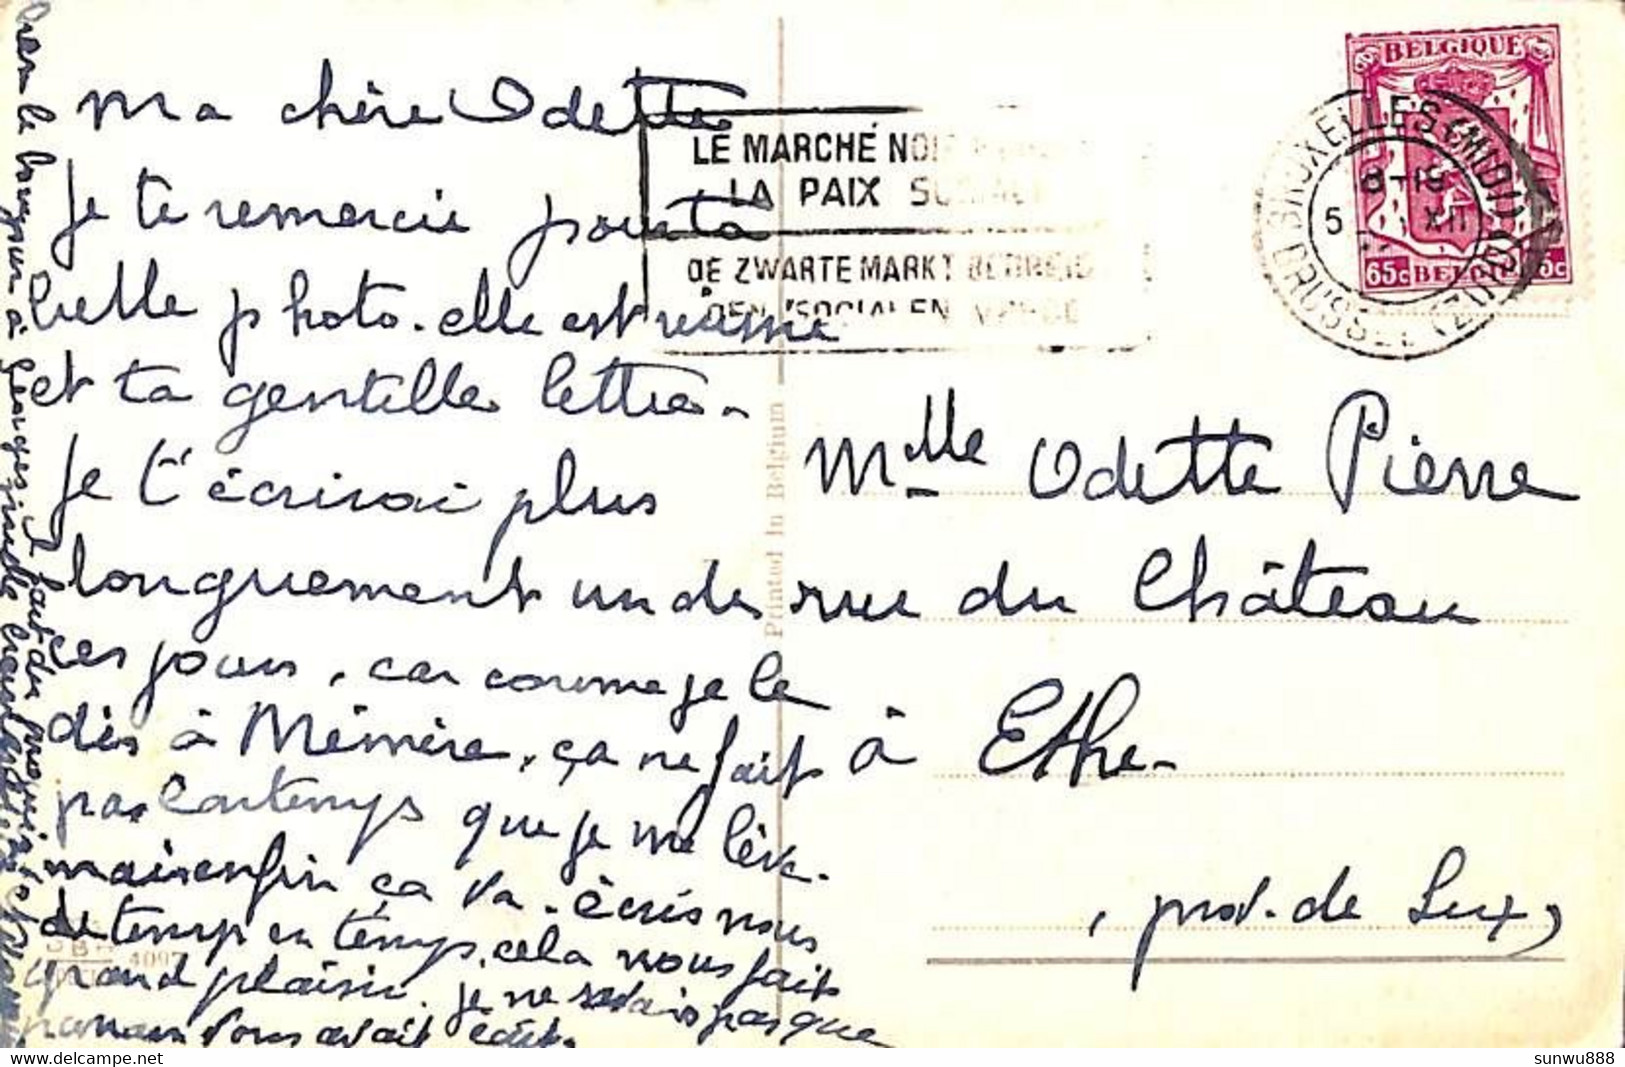 ma chère Odette
je te remercie pour ta
belle photo. elle est
et ta gentille lettre.
je t'écrirai plus
longuement un de
ces jours, car comme je le
dis à Mémère, ça ne fait
pas longtemps que je me lève.
mais enfin ça va. écris nous
de temps en temps, cela nous fait
grand plaisir. je ne savais pas que
maman vous avait écrit.
bonjour à Georges
LE MARCHÉ NOIR
LA PAIX SOCIALE
DE ZWARTE MARKT BEDREIGT
DEN SOCIALEN VREDE
BELGIQUE
65c BELGIE 65c
BRUXELLES (MIDI)
BRUSSEL (ZUID)
5 XII
Printed in Belgium
Mlle Odette Pierre
rue du Château
à Ethe-
, prov. de Lux
4097
sunwu888